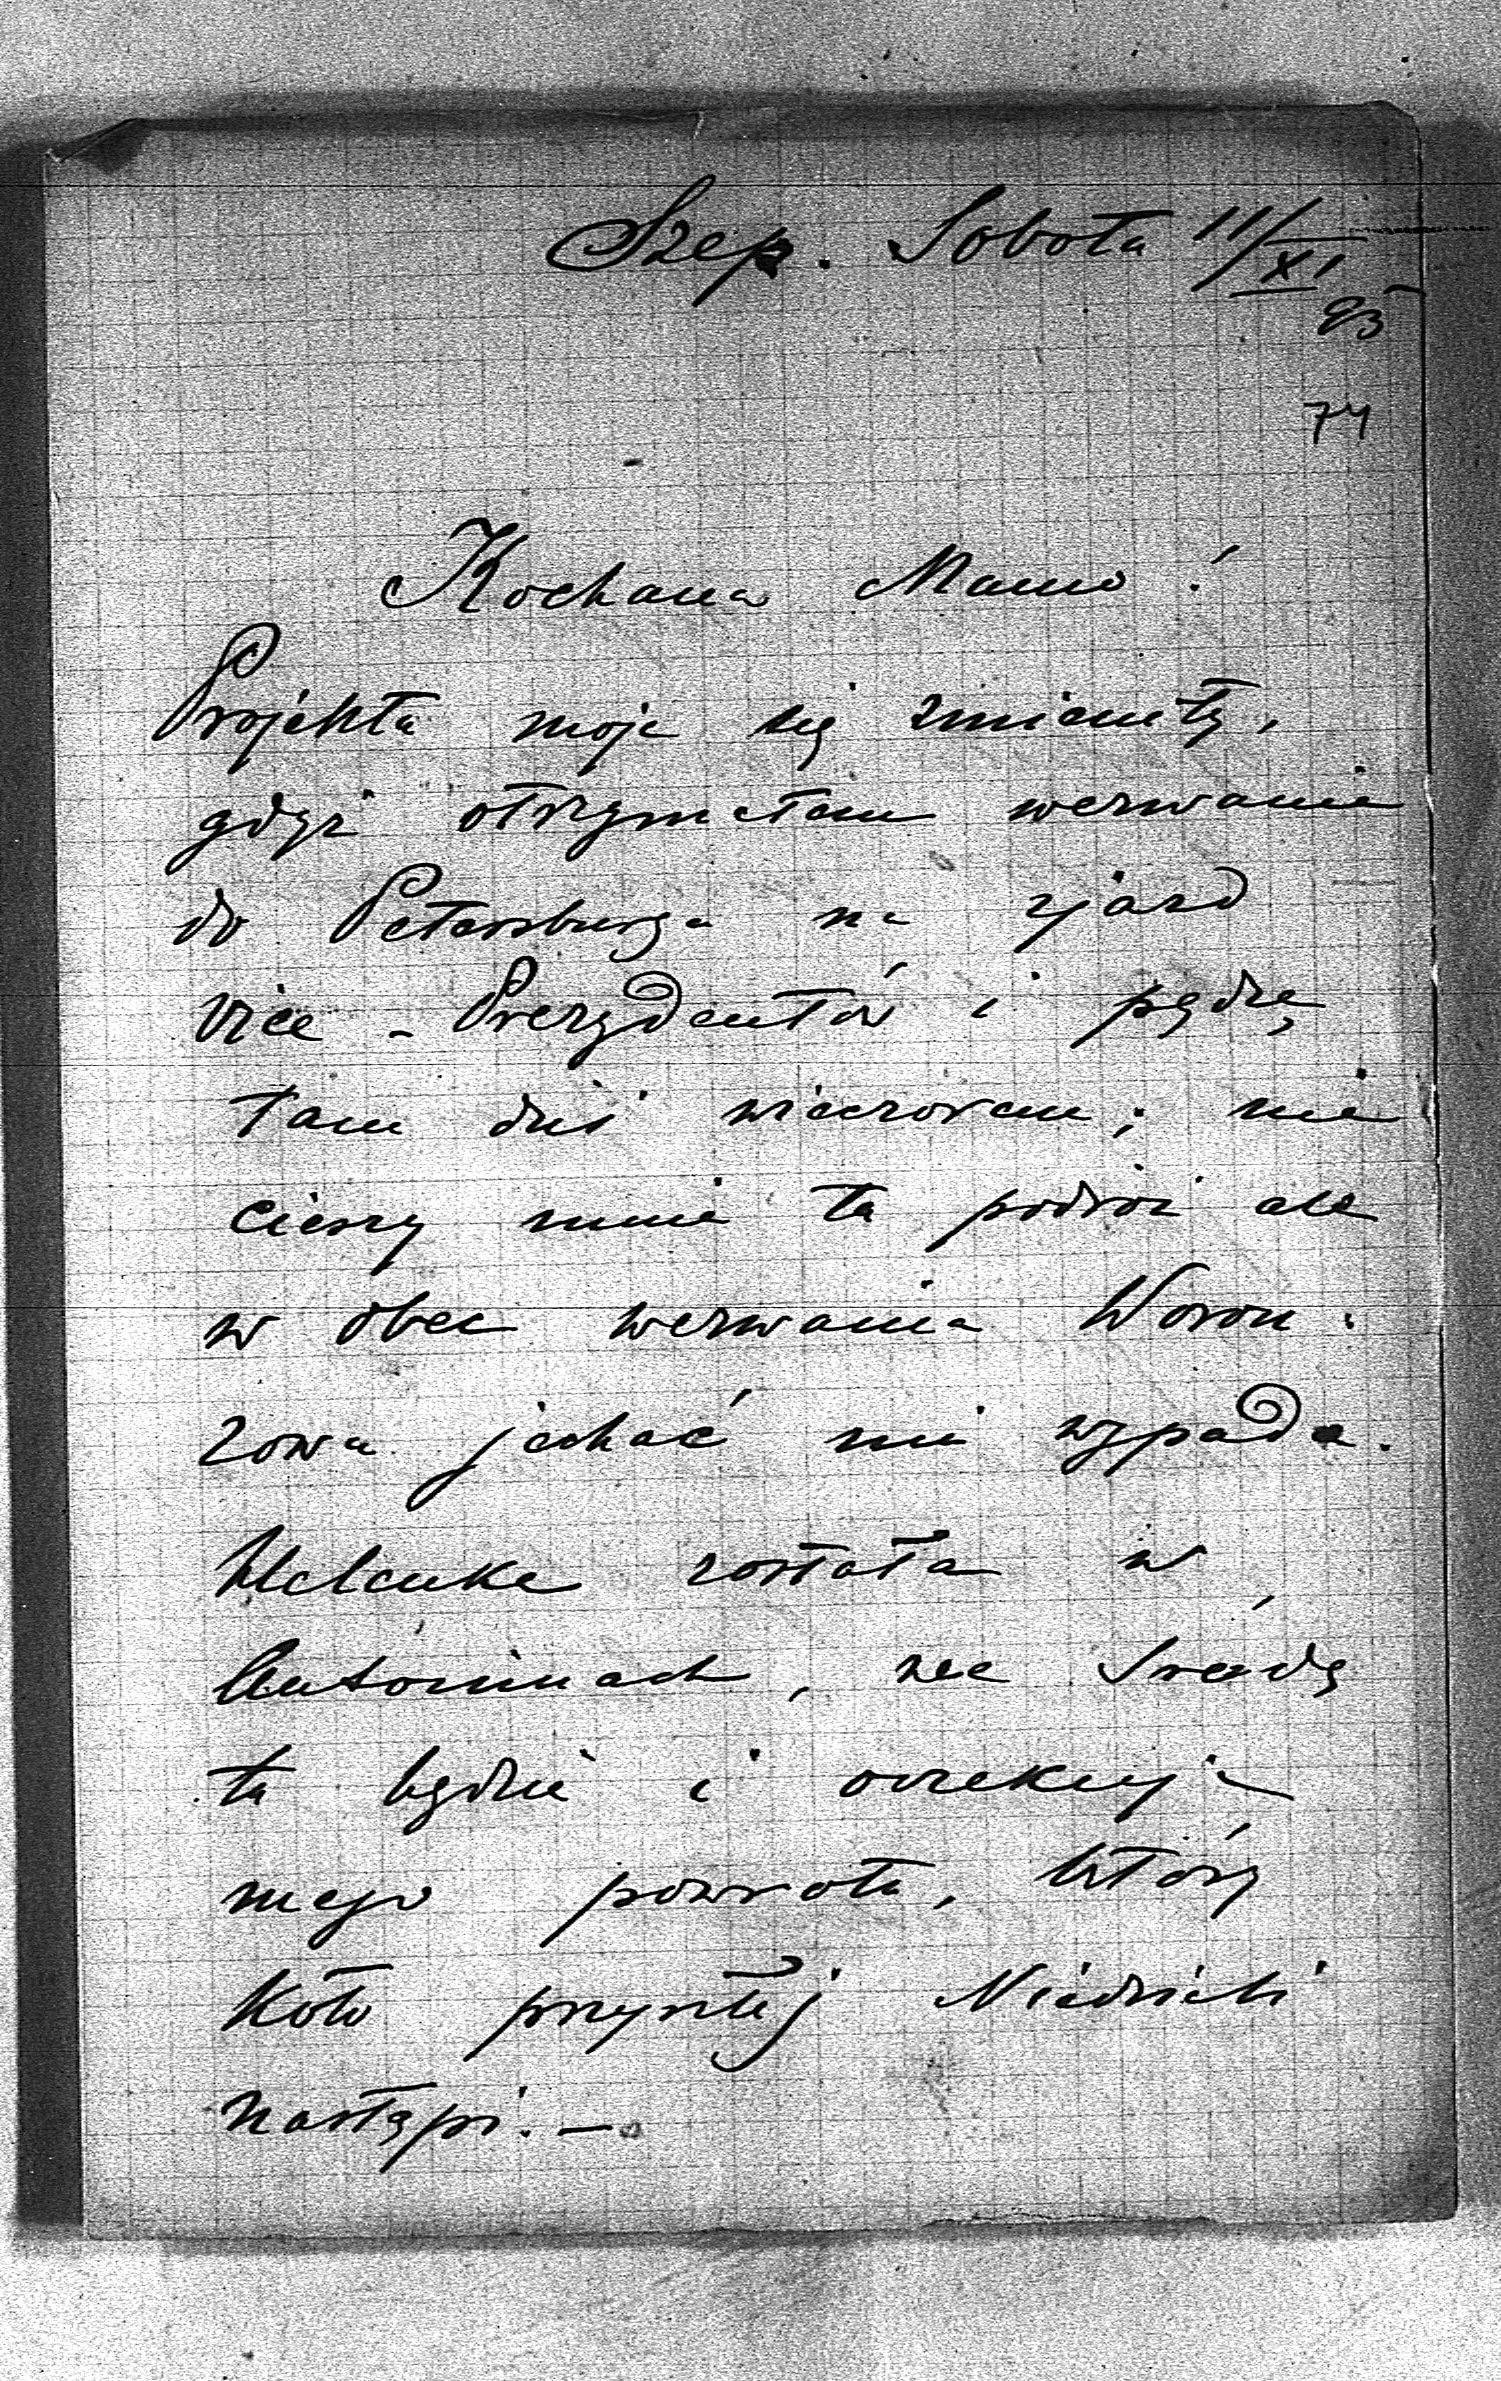 Szep. Sobota 11/XI
93
74
Kochana Mamo!
Projekta moje się zmieniły,
gdyż otrzymałem wezwanie
do Petersburga na zjazd
vice-Prezydentów i pędzę
tam dziś wieczorem; nie
cieszy mnie ta podróż ale
w obec wezwania Woron:
zowa jechać mi wypada.
Helenka została w
Antoninach, na Środę
tu będzie i oczekuje
mego powrotu, który
koło przyszłej Niedzieli
nastąpi. —